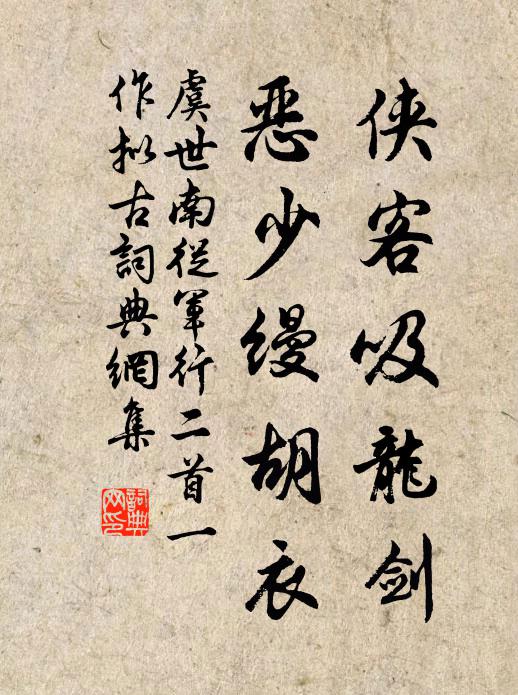 侠客吸龍剑
恶少缦胡衣
虞世南從軍行二首一
作拟古詞典網集
詞典网印